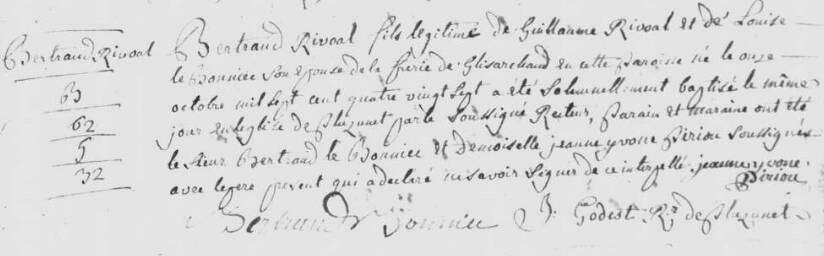 Bertrand Rivoal
B
62
5
32
Bertrand Rivoal fils legitime de Guillaume Rivoal et de Louise
le Bonniec son epouse de la frerie de Glisarchand en cette paroisse né le onze
octobre mil sept cent quatre vingt sept a été solemnellement baptisé le même
jour en leglise de pluzunet par le soussigné Recteur, parain et maraine ont été
le sieur Bertrand le Bonniec et Demoiselle jeanne yvone Piriou soussignés
avec le pere present qui a declaré ne savoir signer de ce interpellé. jeanne yvone
Piriou
Bertrand Bonniec J. Godest Rr de pluzunet